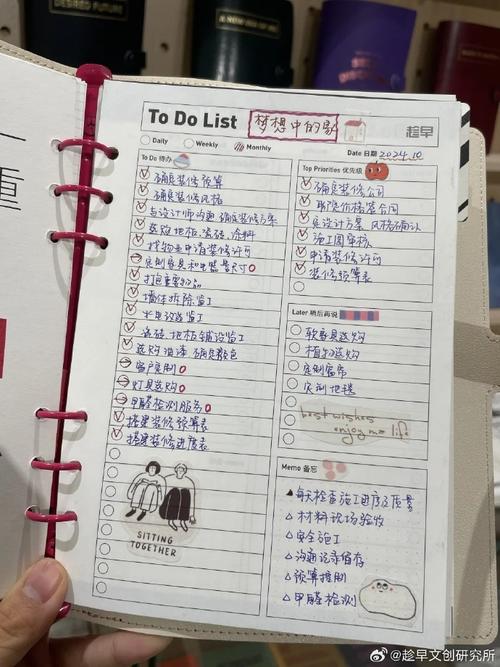 DESIRED FUTURE
A NEW ERA OF ME
To Do List
梦想中的家
趁早
Daily
Weekly
Monthly
Date 日期 2024.10
To Do 待办
确定装修预算
确定装修风格
与设计师沟通 确定装修方案
选购地板、瓷砖、涂料
找物业申请装修许可
定制家具和电器量尺寸
打包重要物品
墙体拆除监工
水电改造监工
瓷砖 地板铺设监工
选购油漆 确定颜色
窗户定制
灯具选购
甲醛检测服务
搭建装修预算表
搭建装修进度表
SITTING
TOGETHER
Top Priorities 优先级
确定装修公司
取定价格签合同
定设计方案 风格确认
施工图审核
申请装修许可
装修预算表
Later 稍后再说
软装家具选购
植物选购
定制窗帘
定制地毯
best wishes
enjoy my life
Memo 备忘
每天检查施工进度及质量
材料现场验收
安全施工
沟通记录留存
预算控制
甲醛检测
重
@趁早文创研究所